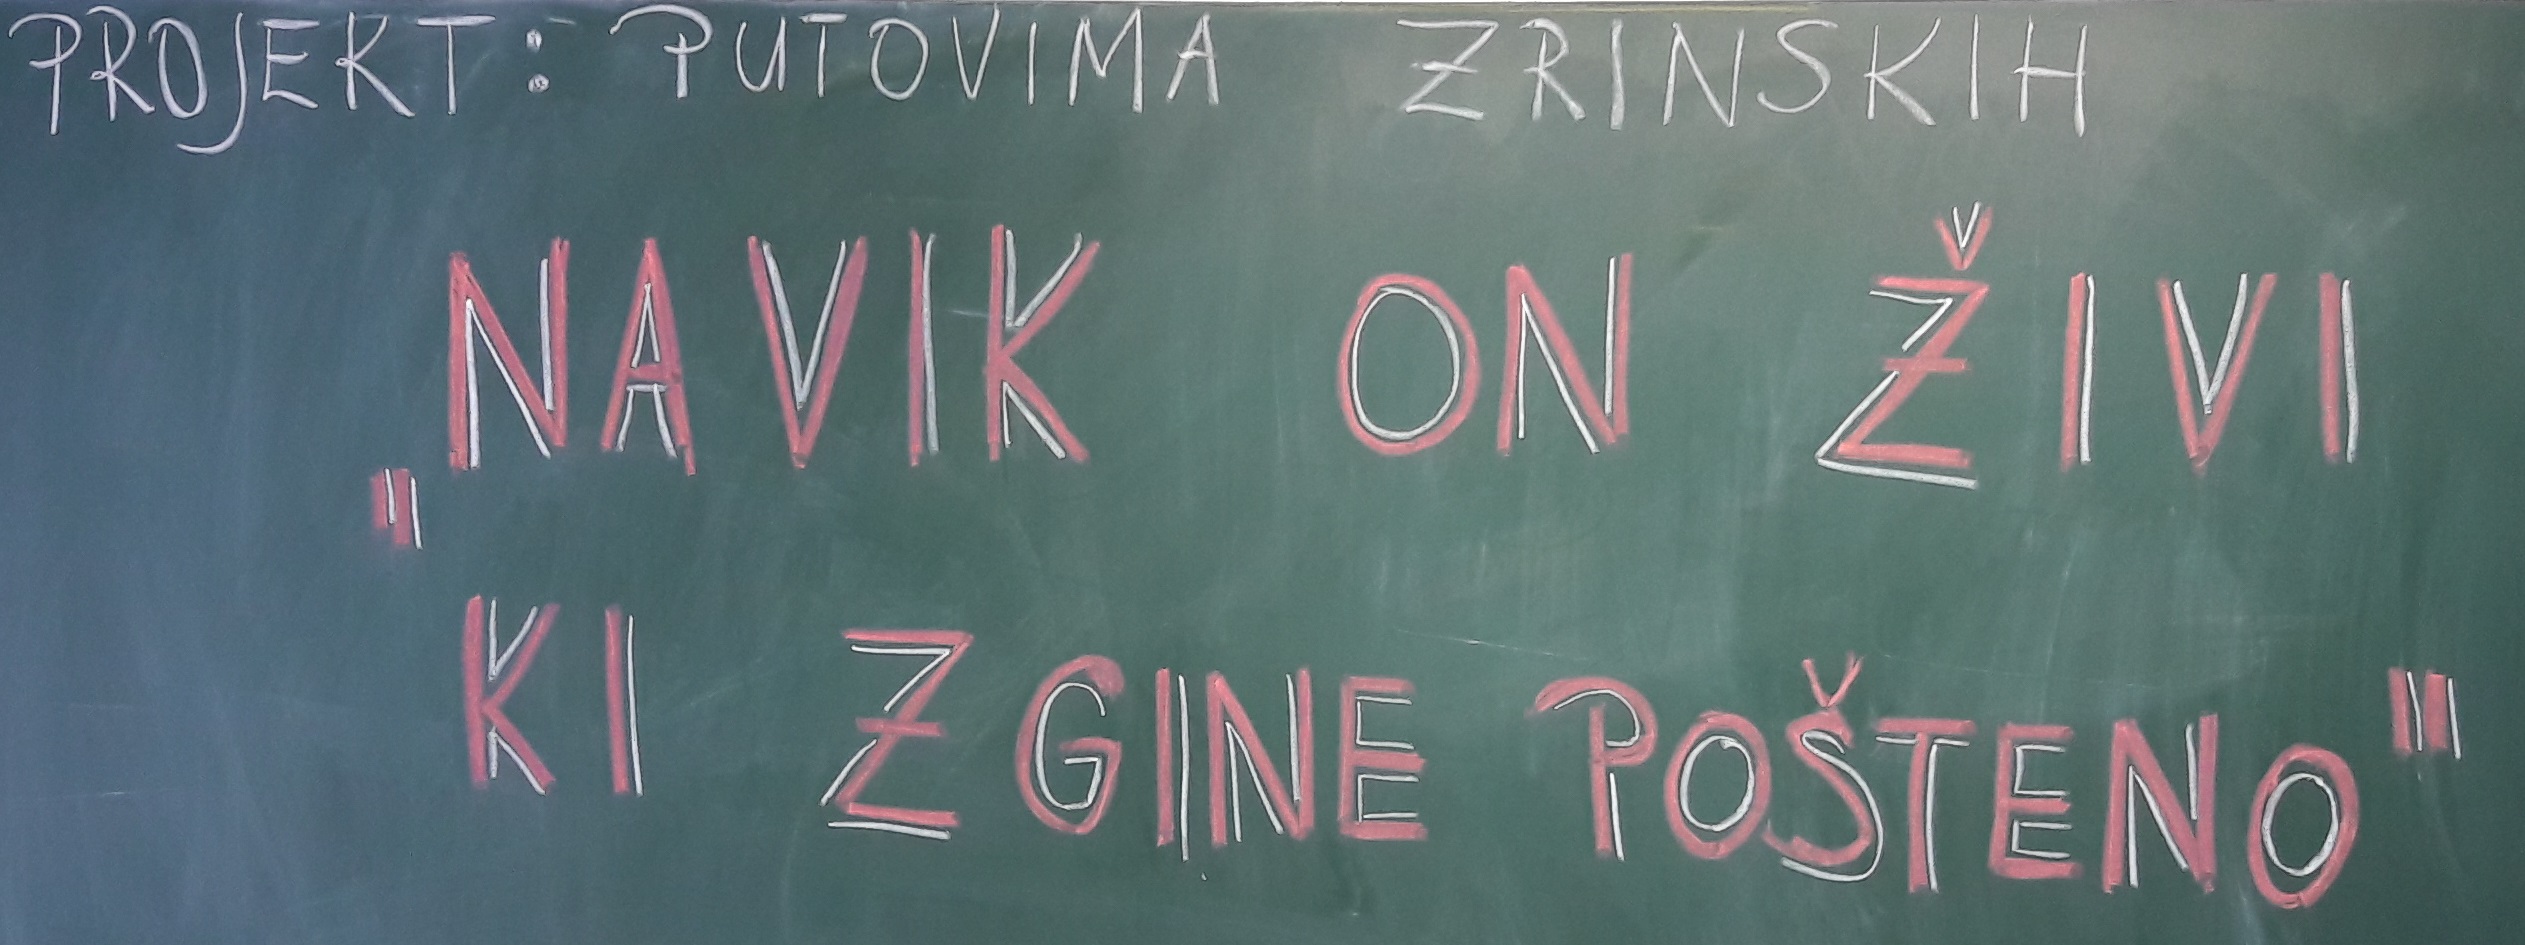 PROJEKT: PUTOVIMA ZRINSKIH
„NAVIK ON ŽIVI
KI ZGINE POŠTENO"